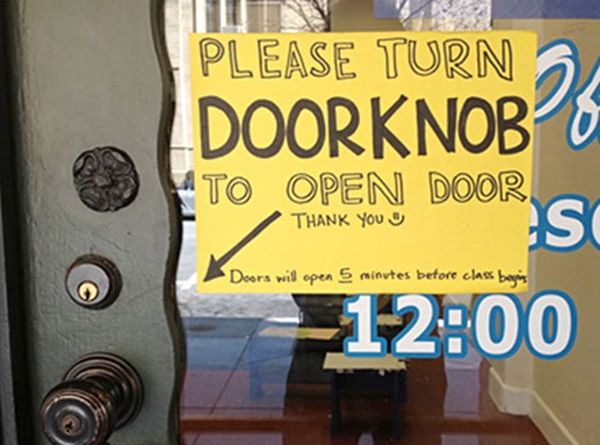 PLEASE TURN
DOORKNOB
TO OPEN DOOR
THANK YOU
Doors will open 5 minutes before class begins
12:00